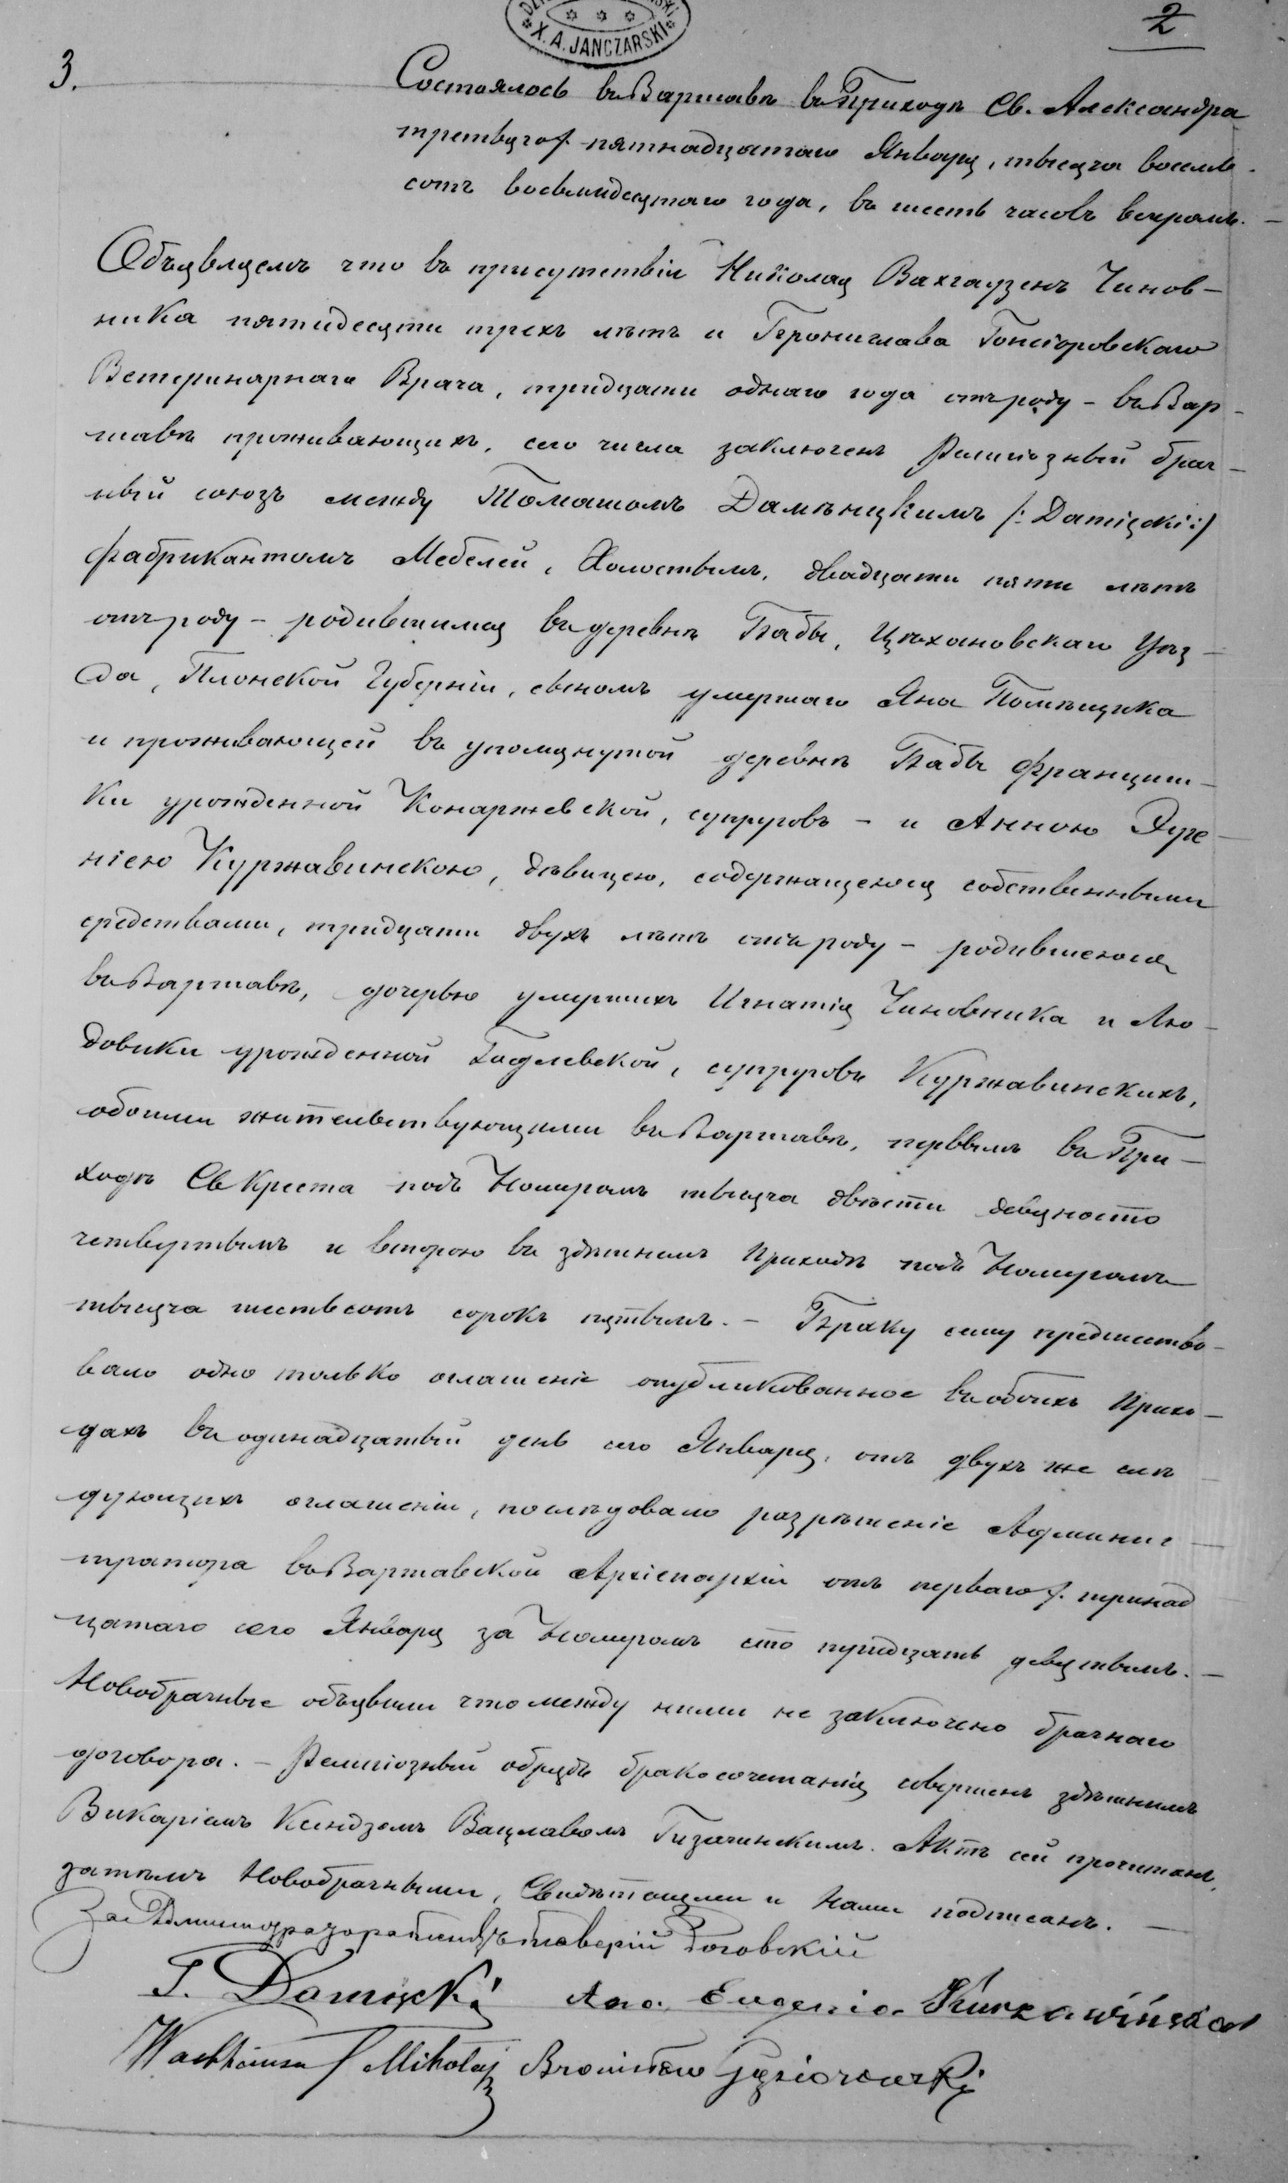 2
X. A. JANCZARSKI
3.
Состоялось въ Варшавѣ въ Приходѣ Св. Александра
третьяго/ пятнадцатаго Января, тысяча восемь-
сотъ восьмидесятаго года, въ шесть часовъ вечеромъ. -
Объявляемъ что въ присутствіи Николая Вахгаузенъ Чинов-
ника пятидесяти трехъ лѣтъ и Бронислава Гонсіоровскаго
Ветеринарнаго Врача, тридцати однаго года отъ роду - въ Вар-
шавѣ проживающихъ, сего числа заключенъ Религіозный брач-
ный союзъ между Томашомъ Дамѣнцкимъ /: Damięcki :/
фабрикантомъ Мебелей, Холостымъ, двадцати пяти лѣтъ
отъ роду - родившимся въ деревнѣ Бабы, Цѣхановскаго Уѣз-
да, Плоцкой Губерніи, сыномъ умершаго Яна Помѣщика
и проживающей въ упомянутой деревнѣ Бабы Францишки-
ки урожденной Конаржевской, супруговъ - и Анною Эуге-
ніею Куржавинскою, дѣвицею, содержащеюся собственными
средствами, тридцати двухъ лѣтъ отъ роду - родившеюся
въ Варшавѣ, дочерью умершихъ Игнатія Чиновника и Лю-
довики урожденной Годлевской, супруговъ Куржавинскихъ,
обоими жительствующими въ Варшавѣ, первымъ въ При-
ходѣ Св Креста подъ Номеромъ тысяча двѣсти девяносто
четвертымъ и второю въ здѣшнемъ Приходѣ подъ Номеромъ
тысяча шестьсотъ сорокъ пятымъ. - Браку сему предшество-
вало одно только оглашеніе опубликованное въ обоихъ Прихо-
дахъ въ одинадцатый день сего Января, отъ двухъ же слѣ-
дующихъ оглашеній, послѣдовало разрѣшеніе Админис-
тратора въ Варшавской Архіепархіи отъ перваго/ тринад
цатаго сего Января за Номеромъ сто тридцать девятымъ. -
Новобрачные объявили что между ними не заключено брачнаго
договора. - Религіозный обрядъ бракосочетанія совершенъ здѣшнимъ
Викаріемъ Ксендзомъ Вацлавомъ. Актъ сей прочитанъ,
затѣмъ Новобрачными, Свидѣтелями и Нами подписанъ. -
За Роговскій
T. Damięcki Anna Eugenia Kurzawińska
Wachhausen Mikołaj Bronisław Gąsiorowski